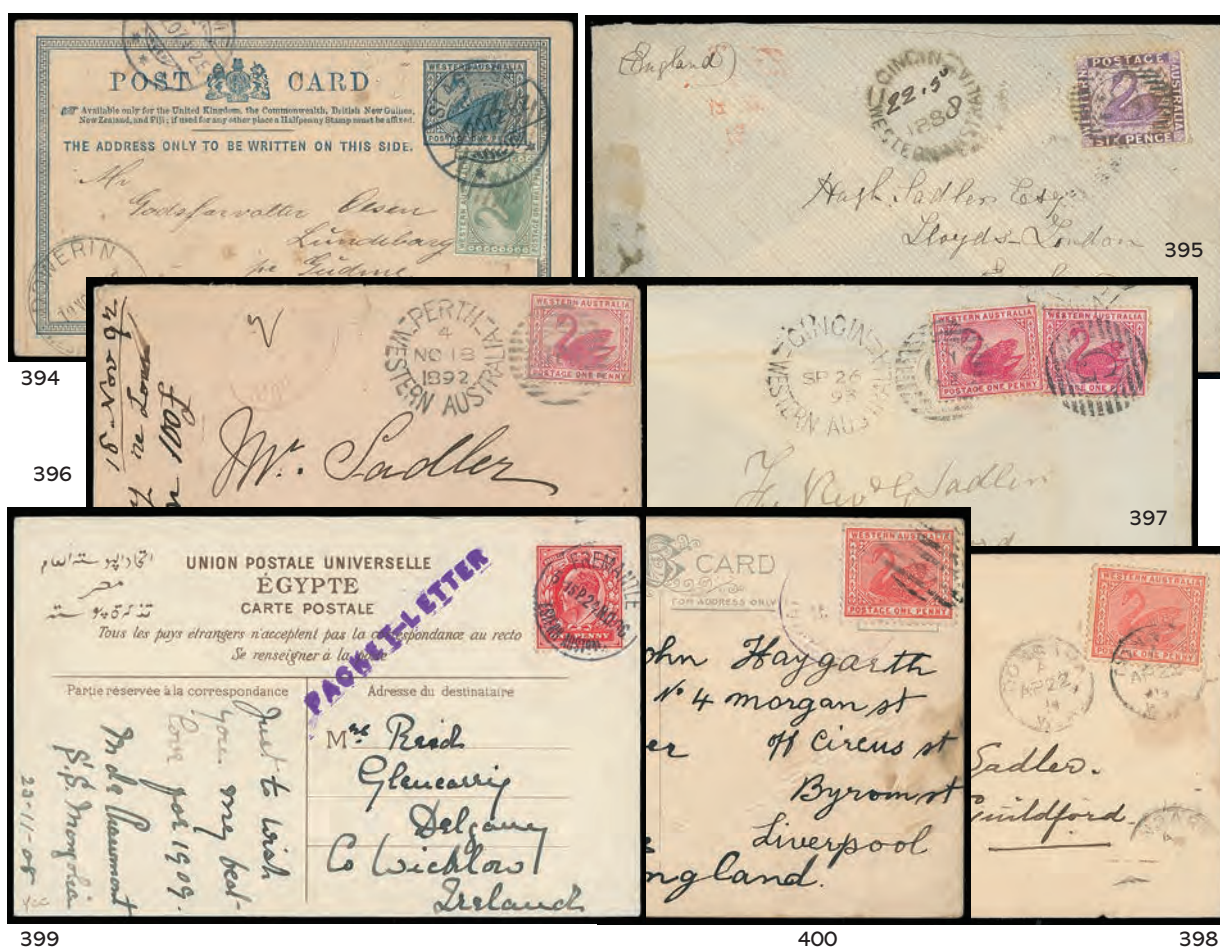 POST CARD
Available only for the United Kingdom, the Commonwealth, British New Guinea,
New Zealand, and Fiji; if used for any other place a Halfpenny Stamp must be affixed.
THE ADDRESS ONLY TO BE WRITTEN ON THIS SIDE.
WESTERN AUSTRALIA
WESTERN AUSTRALIA
Mr
Olsen
Lundeborg
pr Gudme
394
(England)
22.5
1888
WESTERN
POSTAGE
AUSTRALIA
SIX PENCE
Hugh Sadler Esq
Lloyds London
395
18 Nov 92
PERTH
4
NO 18
1892
WESTERN AUSTRALIA
WESTERN AUSTRALIA
POSTAGE ONE PENNY
Mr. Sadler
396
GINGIN
SP 26
93
WESTERN AUS
WESTERN AUSTRALIA
POSTAGE ONE PENNY
WESTERN AUSTRALIA
Sadler
397
UNION POSTALE UNIVERSELLE
ÉGYPTE
CARTE POSTALE
Tous les pays étrangers n'acceptent pas la correspondance au recto
Se renseigner à la
PACKET-LETTER
FREMANTLE
Partie réservée à la correspondance
Adresse du destinataire
Just to wish
you my best
love for 1909.
S.S. Mongolia
23-11-08
Mrs Reid
Glencarrig
Delgany
Co Wicklow
Ireland
399
CARD
FOR ADDRESS ONLY
WESTERN AUSTRALIA
POSTAGE ONE PENNY
ohn Haygarth
No 4 morgan st
off Circus st
Byrom st
Liverpool
ngland.
400
WESTERN AUSTRALIA
POSTAGE ONE PENNY
AP 22
14
Sadler.
Guildford
398